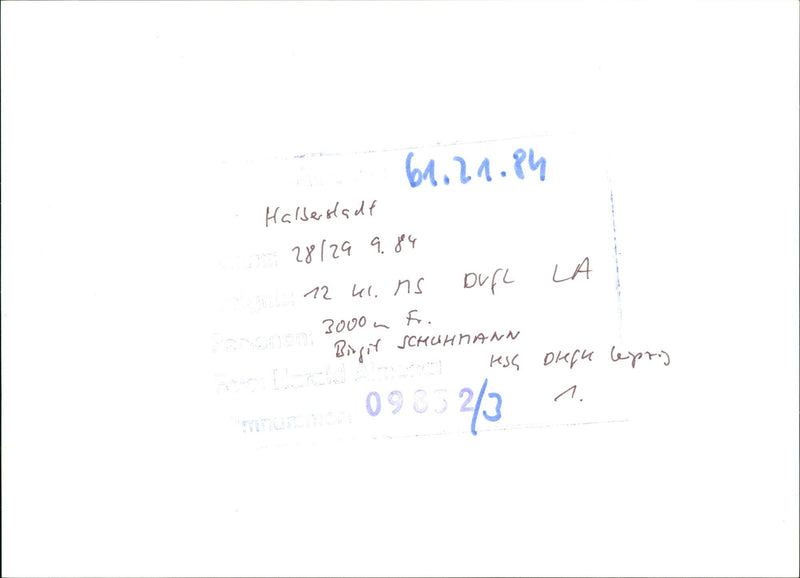 61.21.84
Halberstadt
28/29 9.84
12 MS DVfL LA
3000 m Fr.
Personen:
Birgit SCHUHMANN
HSG DHfK Leipzig
Foto: Harald
Filmnummer: 09852/3
1.